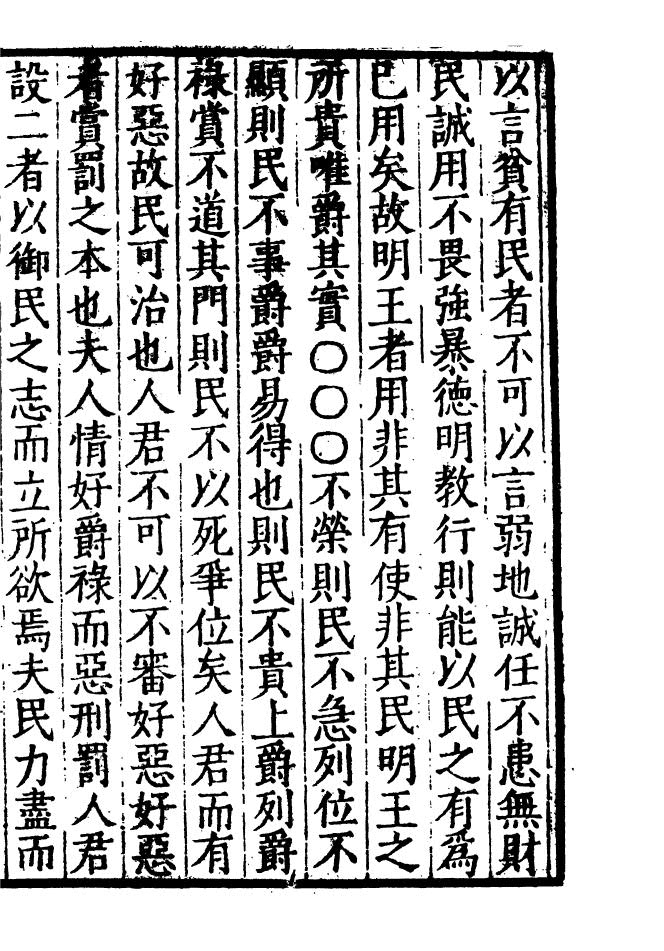 以言貧有民者不可以言弱地誠任不患無財
民誠用不畏強暴德明教行則能以民之有爲
已用矣故明王者用非其有使非其民明王之
所貴唯爵其實○○○不榮則民不急列位不
顯則民不事爵爵易得也則民不貴上爵列爵
祿賞不道其門則民不以死爭位矣人君而有
好惡故民可治也人君不可以不審好惡好惡
者賞罰之本也夫人情好爵祿而惡刑罰人君
設二者以御民之志而立所欲焉夫民力盡而